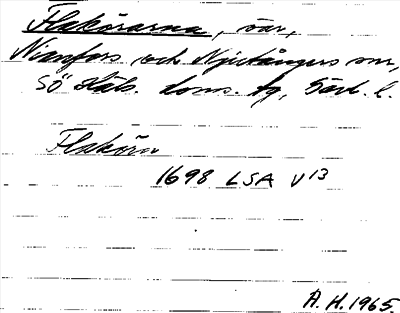 Flakörarna, öar,
Nianfors och Njutångers snr,
SÖ Häls. doms. tg, Gävl. l.
Flakörn
1698 LSA V13
A. H. 1965.